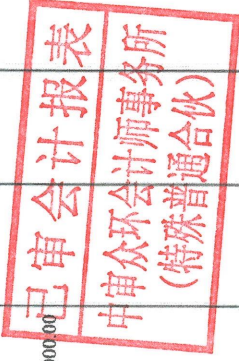 已审会计报表
中审众环会计师事务所
（特殊普通合伙）
000.00